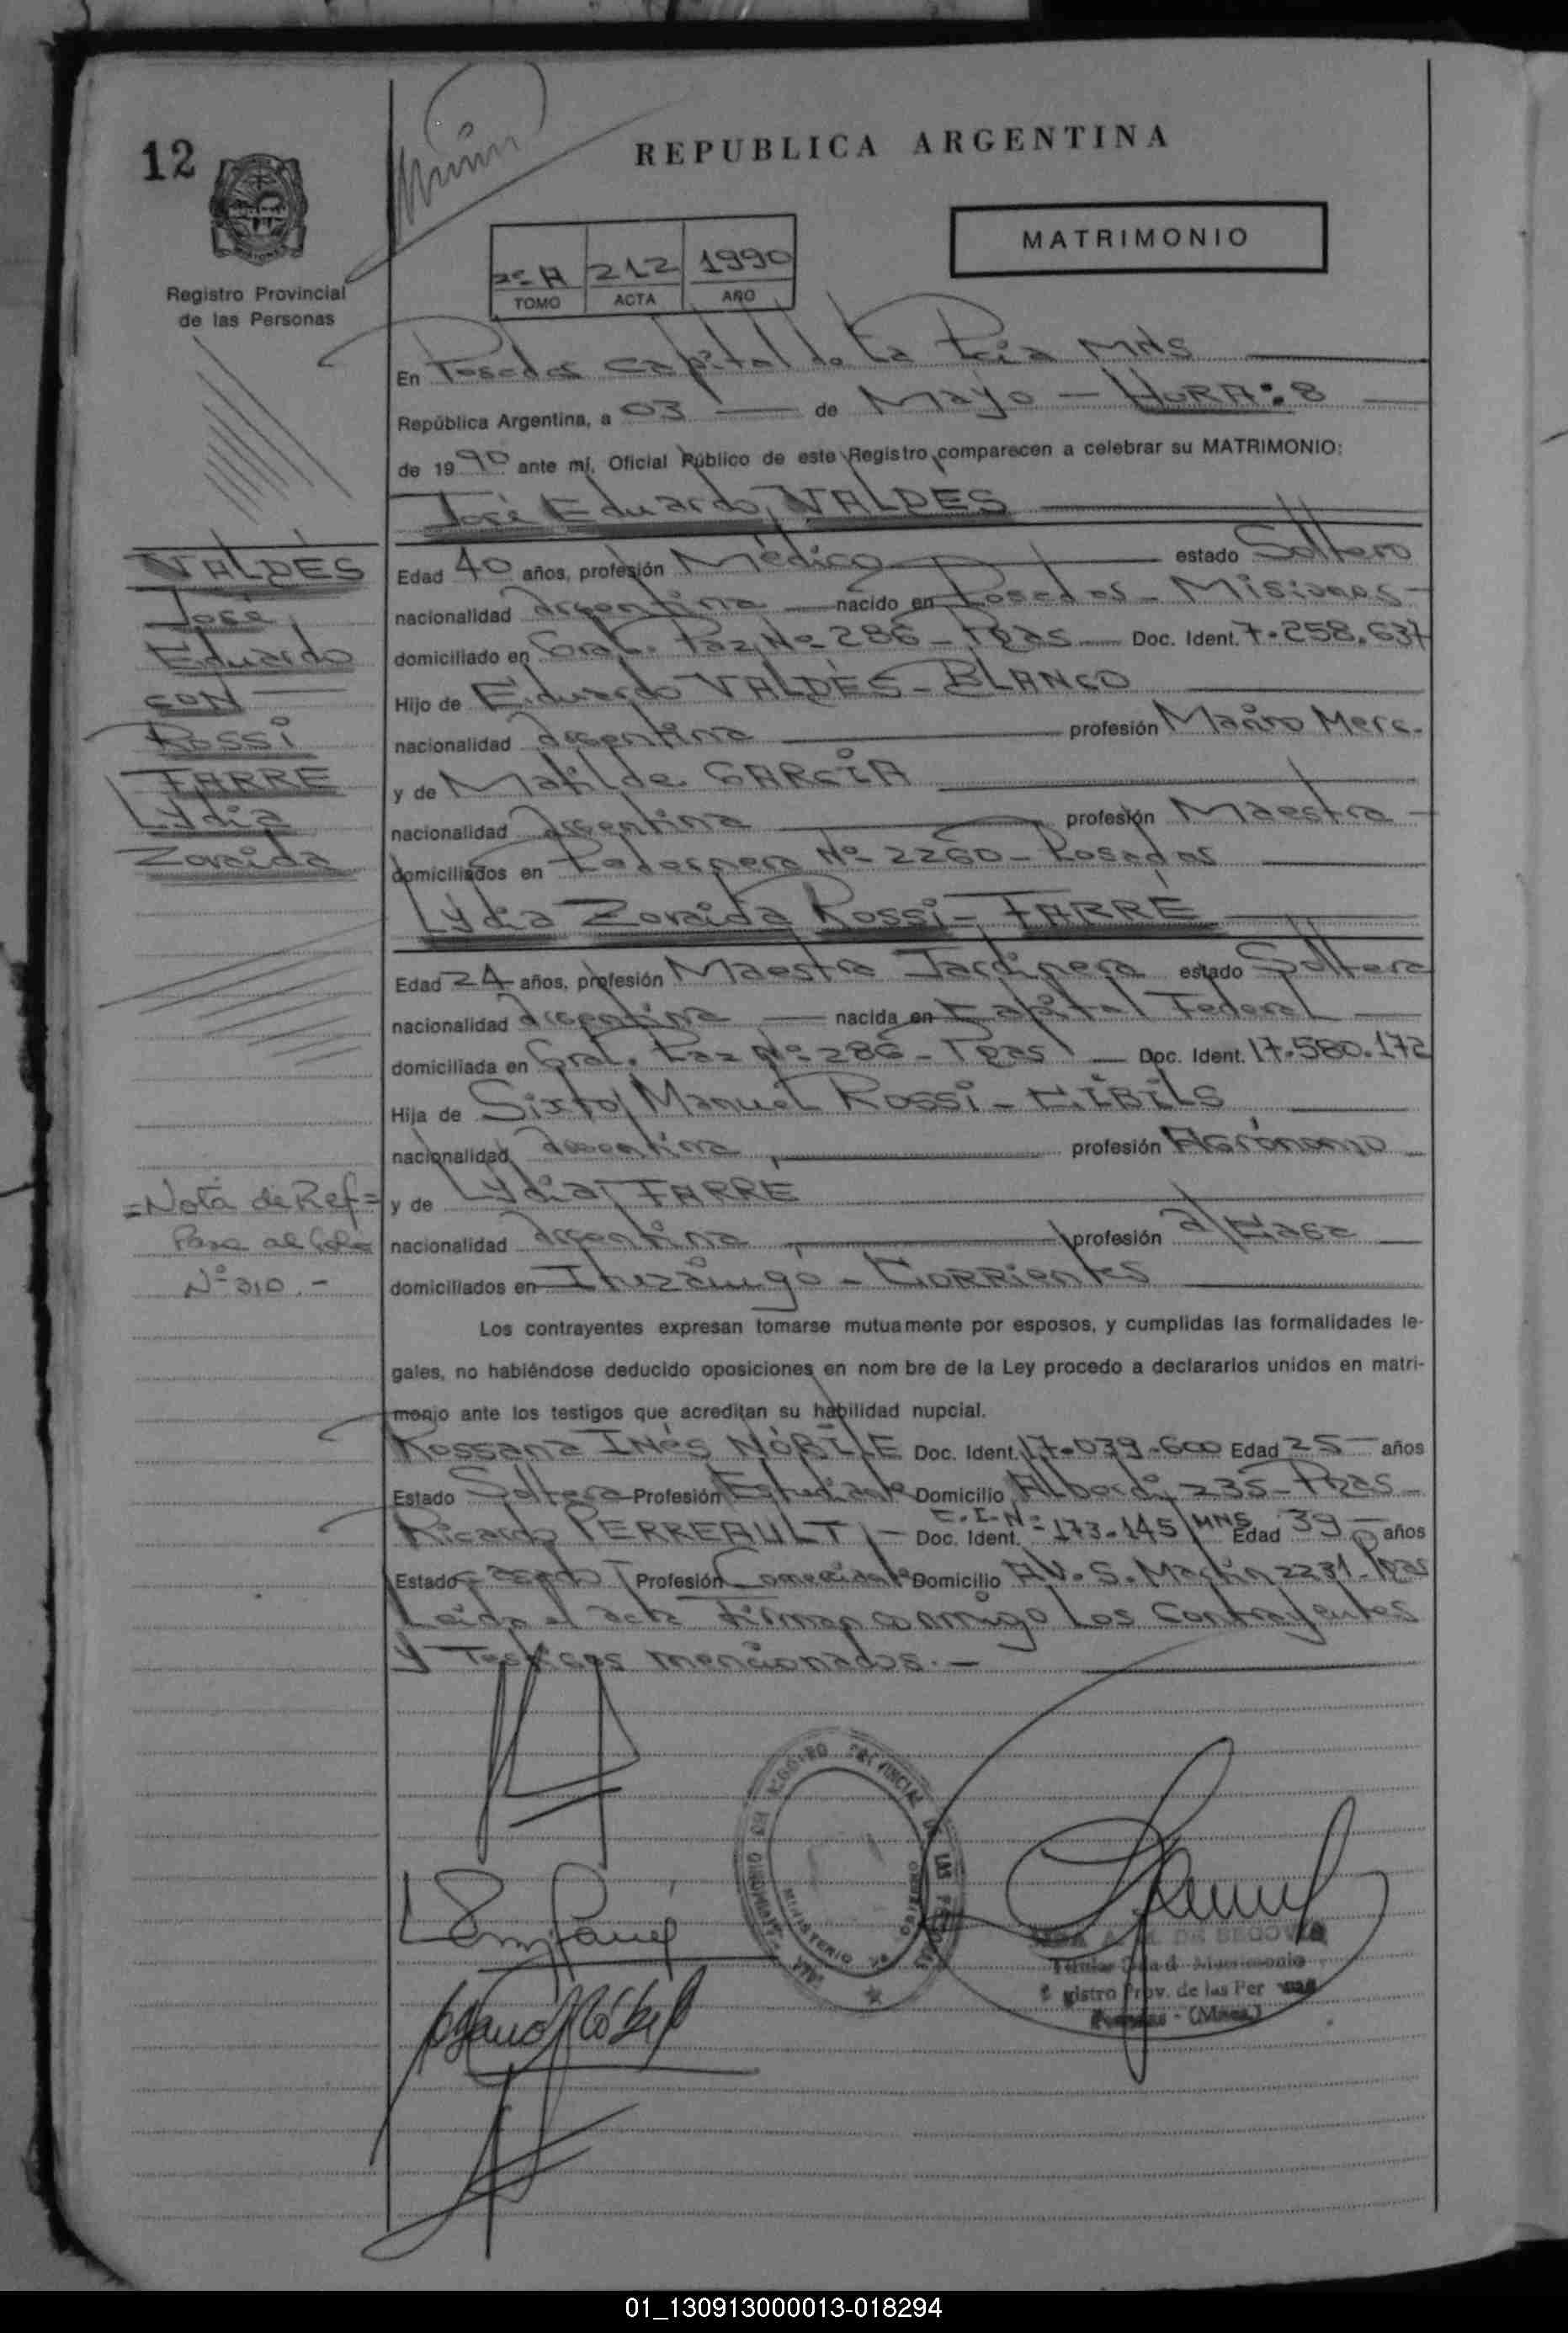 12
REPUBLICA ARGENTINA
MATRIMONIO
Registro Provincial
de las Personas
2º A 212 1990
TOMO ACTA AÑO
En Posadas Capital de La Pcia MNS
República Argentina, a 03 de Mayo - HORA: 8
de 1990 ante mí, Oficial Público de este Registro comparecen a celebrar su MATRIMONIO:
José Eduardo, VALDÉS
VALDÉS
José
Eduardo
CON
ROSSI
FARRE
Lydia
Zoraida
Edad 40 años, profesión Médico estado Soltero
nacionalidad Argentina nacido en Posadas - Misiones
domiciliado en Gral. Paz Nº 286 - Pdas Doc. Ident. 7.258.637
Hijo de Eduardo VALDÉS - BLANCO
nacionalidad Argentina profesión Merc.
y de Matilde GARCÍA
nacionalidad Argentina profesión Maestra
domiciliados en Pedernera Nº 2260 - Posadas
Lydia Zoraida ROSSI - FARRÉ
Edad 24 años, profesión Maestra Jardinera estado Soltera
nacionalidad Argentina nacida en Capital Federal
domiciliada en Gral. Paz Nº 286 - Pdas Doc. Ident. 17.580.172
Hija de Sixto Manuel ROSSI - CIBILS
nacionalidad Argentina profesión Agrónomo
y de Lydia FARRE
nacionalidad Argentina profesión a/casa
domiciliados en Ituzaingó - Corrientes
= Nota de Ref =
Pase al Folio
Nº 310.-
Los contrayentes expresan tomarse mutuamente por esposos, y cumplidas las formalidades le-
gales, no habiéndose deducido oposiciones en nom bre de la Ley procedo a declararlos unidos en matri-
monio ante los testigos que acreditan su habilidad nupcial.
Rossana Inés NÓBILE Doc. Ident. 17.039.600 Edad 25 años
Estado Soltera Profesión Estudiante Domicilio Alberdi 235 - Pdas -
Ricardo PERREAULT - Doc. Ident. C.I.Nº 173.145/MNS Edad 39 años
Estado casado Profesión Comerciante Domicilio AV. S. Martín 2231 - Pdas
Leída el acta firman conmigo Los contrayentes
y Testigos mencionados. -
REGISTRO PROVINCIAL DE LAS PERSONAS
MINISTERIO DE GOBIERNO
DE SEGOVIA
Titular Matrimonio
Registro Prov. de las Personas
Posadas - (Mnes.)
01_130913000013-018294